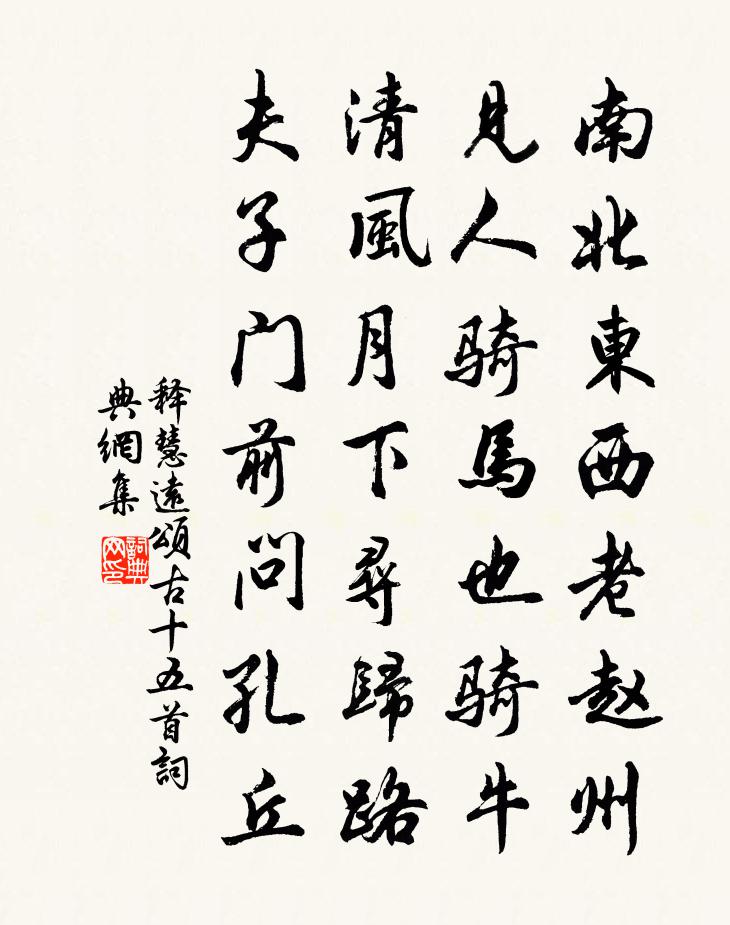 南北東西老赵州
見人骑馬也骑牛
清風月下尋歸路
夫子门前问孔丘
释慧遠頌古十五首詞
典網集
詞典网印